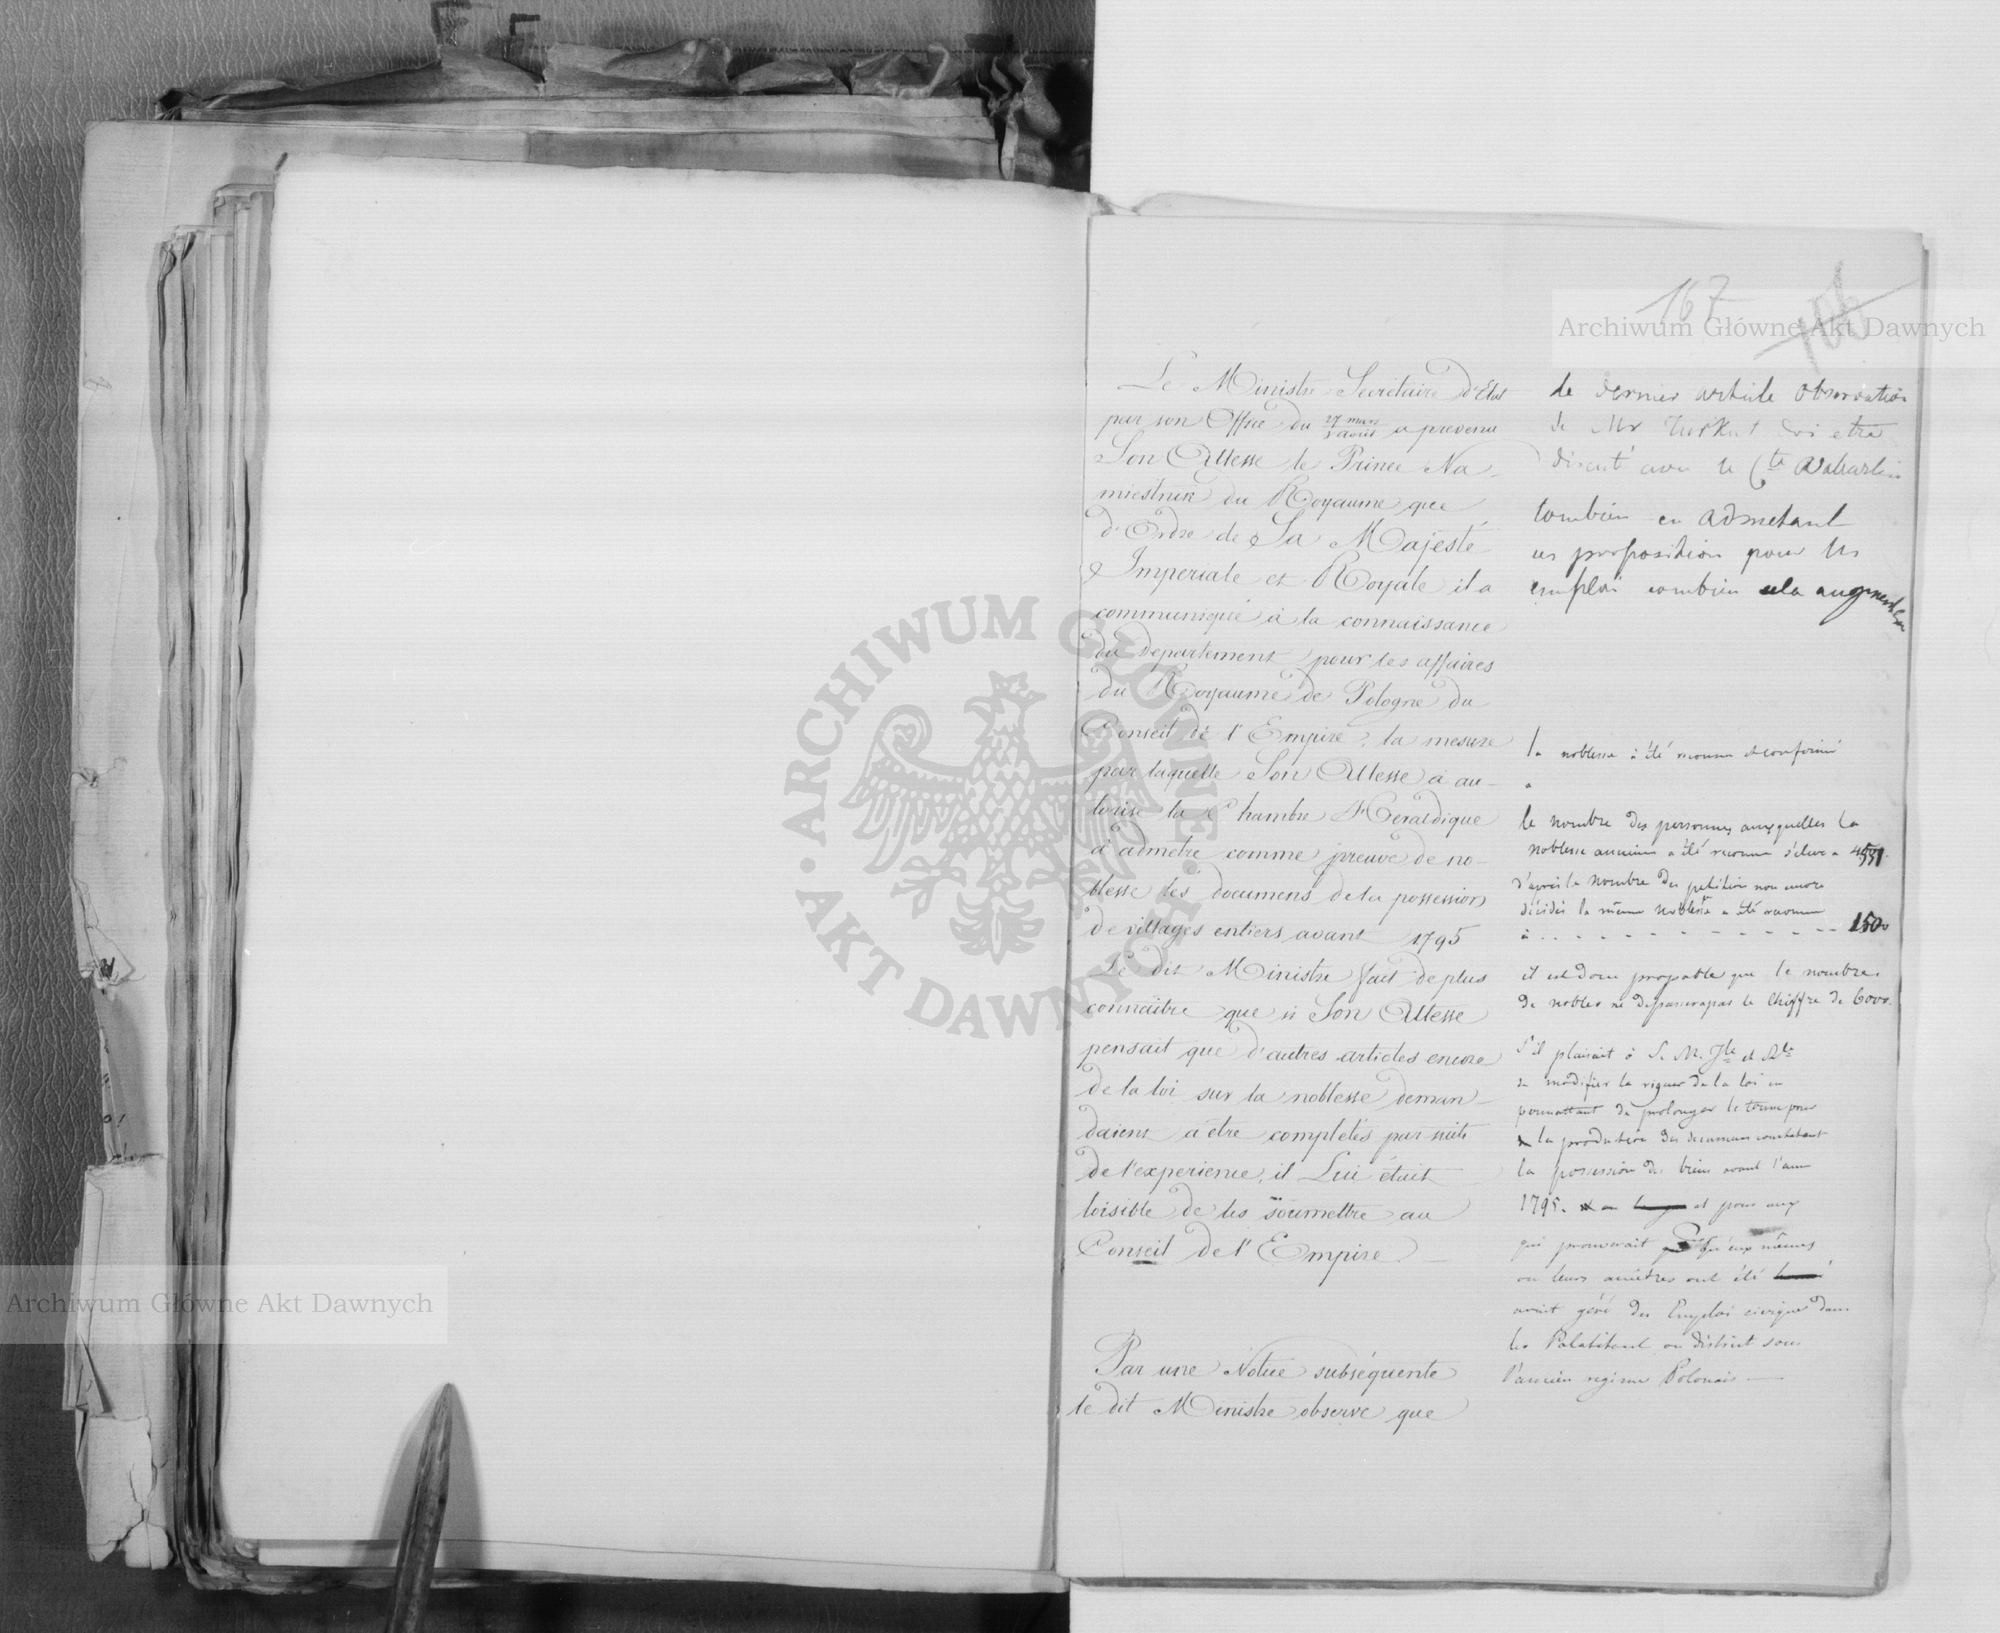 167
106
Archiwum Główne Akt Dawnych
Le Ministre Secrétaire d'Etat
par son Office du 27 mars a prevenu
Son Altesse le Prince Na-
miestnik du Royaume que
d'Ordre de Sa Majesté
Imperiale et Royale il a
communiqué à la connaissance
du Departement pour les affaires
du Royaume de Pologne du
Conseil de l'Empire, la mesure
par laquelle Son Altesse a au-
torisé la Chambre Héraldique
à admetre comme preuve de no-
blesse les documens de la possession
de villages entiers avant 1795
Le dit Ministre fait de plus
connaitre que si Son Altesse
pensait que d'autres articles encore
de la loi sur la noblesse deman-
daient a être completés par suite
de l'experience, il Lui était
loisible de les soumettre au
Conseil de l'Empire
Par une Notice subséquente
le dit Ministre observe que
le dernier article observation
de Mr Turkul doi etre
discuté avec le Cte
combien en admetant
ces proposition pour les
emploi combien cela augmentera
la noblesse a été reconnu et confirmé
a
le nombre des personnes auxquelles la
noblesse ancienne a été reconnu s'eleve a 4531
d'après le nombre des petition non encore
décidés la même noblesse a été reconnu
à - - - - - - - - - - - - 1500
il est donc propable que le nombre
de nobles ne depasserapas le chiffre de 6000.
S'il plaisait à S. M. Ile et Rle
de modifier la riguer de la loi en
permettant de prolonger le terme pour
la production des documens constatant
la possession des biens avant l'ann
1795. et pour eux
qui prouverait qu'eux mêmes
ou leurs ancêtres ont été
avait géré des Emploi civique dans
les Palatinat ou district sous
l'ancien regime Polonais —
ARCHIWUM GŁÓWNE AKT DAWNYCH
Archiwum Główne Akt Dawnych